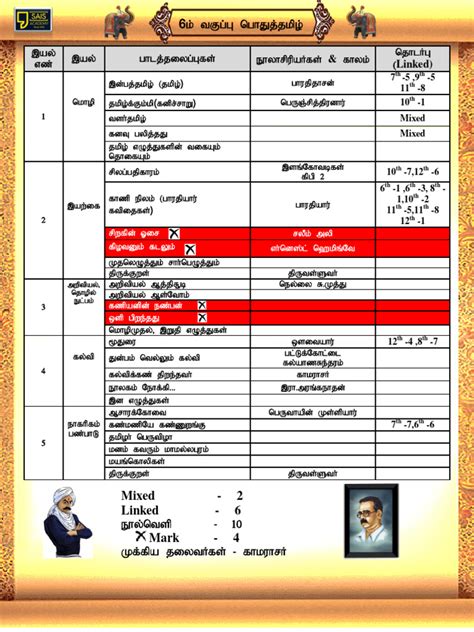 SAIS
ACADEMY
6ம் வகுப்பு பொதுத்தமிழ்
இயல் எண் இயல் பாடத்தலைப்புகள் நூலாசிரியர்கள் & காலம் தொடர்பு (Linked)
1 மொழி
இன்பத்தமிழ் (தமிழ்) பாரதிதாசன் 7th -5 ,9th -5 11th -8
தமிழ்க்கும்மி(கனிச்சாறு) பெருஞ்சித்திரனார் 10th -1
வளர்தமிழ் Mixed
கனவு பலித்தது Mixed
தமிழ் எழுத்துகளின் வகையும் தொகையும்
2 இயற்கை
சிலப்பதிகாரம் இளங்கோவடிகள் கிபி 2 10th -7,12th -6
காணி நிலம் (பாரதியார் கவிதைகள்) பாரதியார் 6th -1 ,6th -3, 8th -1,10th -2 11th -5,11th -8 12th -1
சிறகின் ஓசை சலீம் அலி
கிழவனும் கடலும் எர்னெஸ்ட் ஹெமிங்வே
முதலெழுத்தும் சார்பெழுத்தும்
திருக்குறள் திருவள்ளுவர்
3 அறிவியல், தொழில் நுட்பம்
அறிவியல் ஆத்திசூடி நெல்லை சு.முத்து
அறிவியல் ஆள்வோம்
கணியனின் நண்பன்
ஒளி பிறந்தது
மொழிமுதல், இறுதி எழுத்துகள்
4 கல்வி
மூதுரை ஔவையார் 12th -4 ,8th -7
துன்பம் வெல்லும் கல்வி பட்டுக்கோட்டை கல்யாணசுந்தரம்
கல்விக்கண் திறந்தவர் காமராசர்
நூலகம் நோக்கி... இரா.அரங்கநாதன்
இன எழுத்துகள்
5 நாகரிகம் பண்பாடு
ஆசாரக்கோவை பெருவாயின் முள்ளியார்
கண்மணியே கண்ணுறங்கு 7th -7,6th -6
தமிழர் பெருவிழா
மனம் கவரும் மாமல்லபுரம்
மயங்கொலிகள்
திருக்குறள் திருவள்ளுவர்
Mixed - 2
Linked - 6
நூல்வெளி - 10
Mark - 4
முக்கிய தலைவர்கள் - காமராசர்